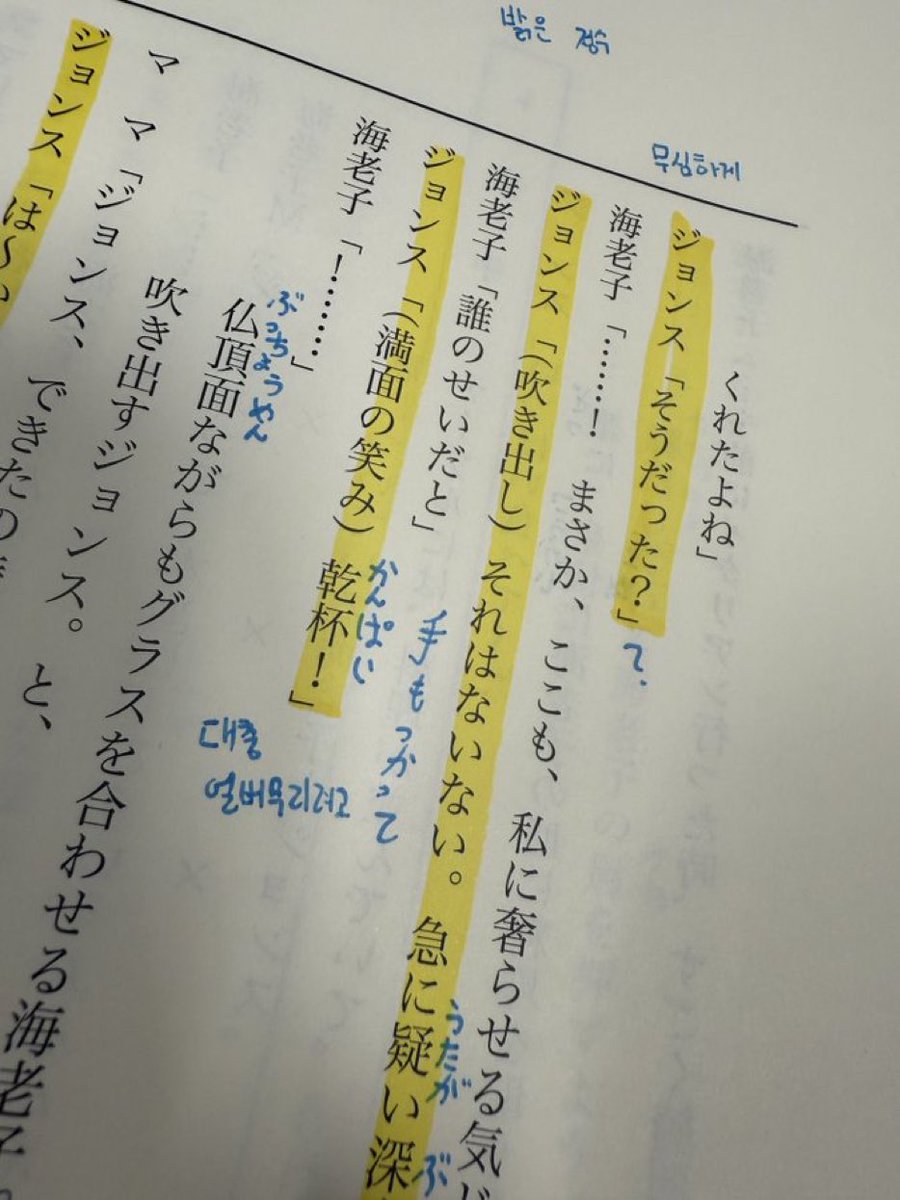 밝은 정수
무심하게
くれたよね」
ジョンス「そうだった?」
て.
海老子「……! まさか、ここも、私に奢らせる気
ジョンス「(吹き出し)それはないない。急に疑い深
うたが
ぶ
海老子「誰のせいだと」
手もつかって
ジョンス「(満面の笑み)乾杯!」
かんぱい
대충
얼버무리려고
海老子「!……」
仏頂面ながらもグラスを合わせる海老子
ぶっちょうめん
吹き出すジョンス。と、
ママ「ジョンス、できたの
ジョンス「は〜い